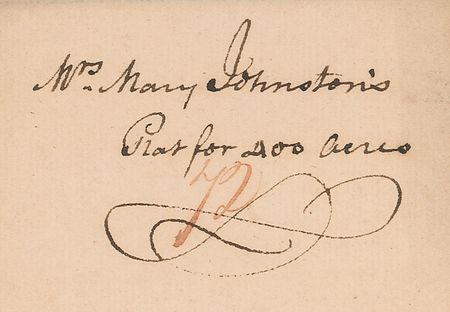 Mrs. Mary Johnston's
Plat for 400 Acres
72